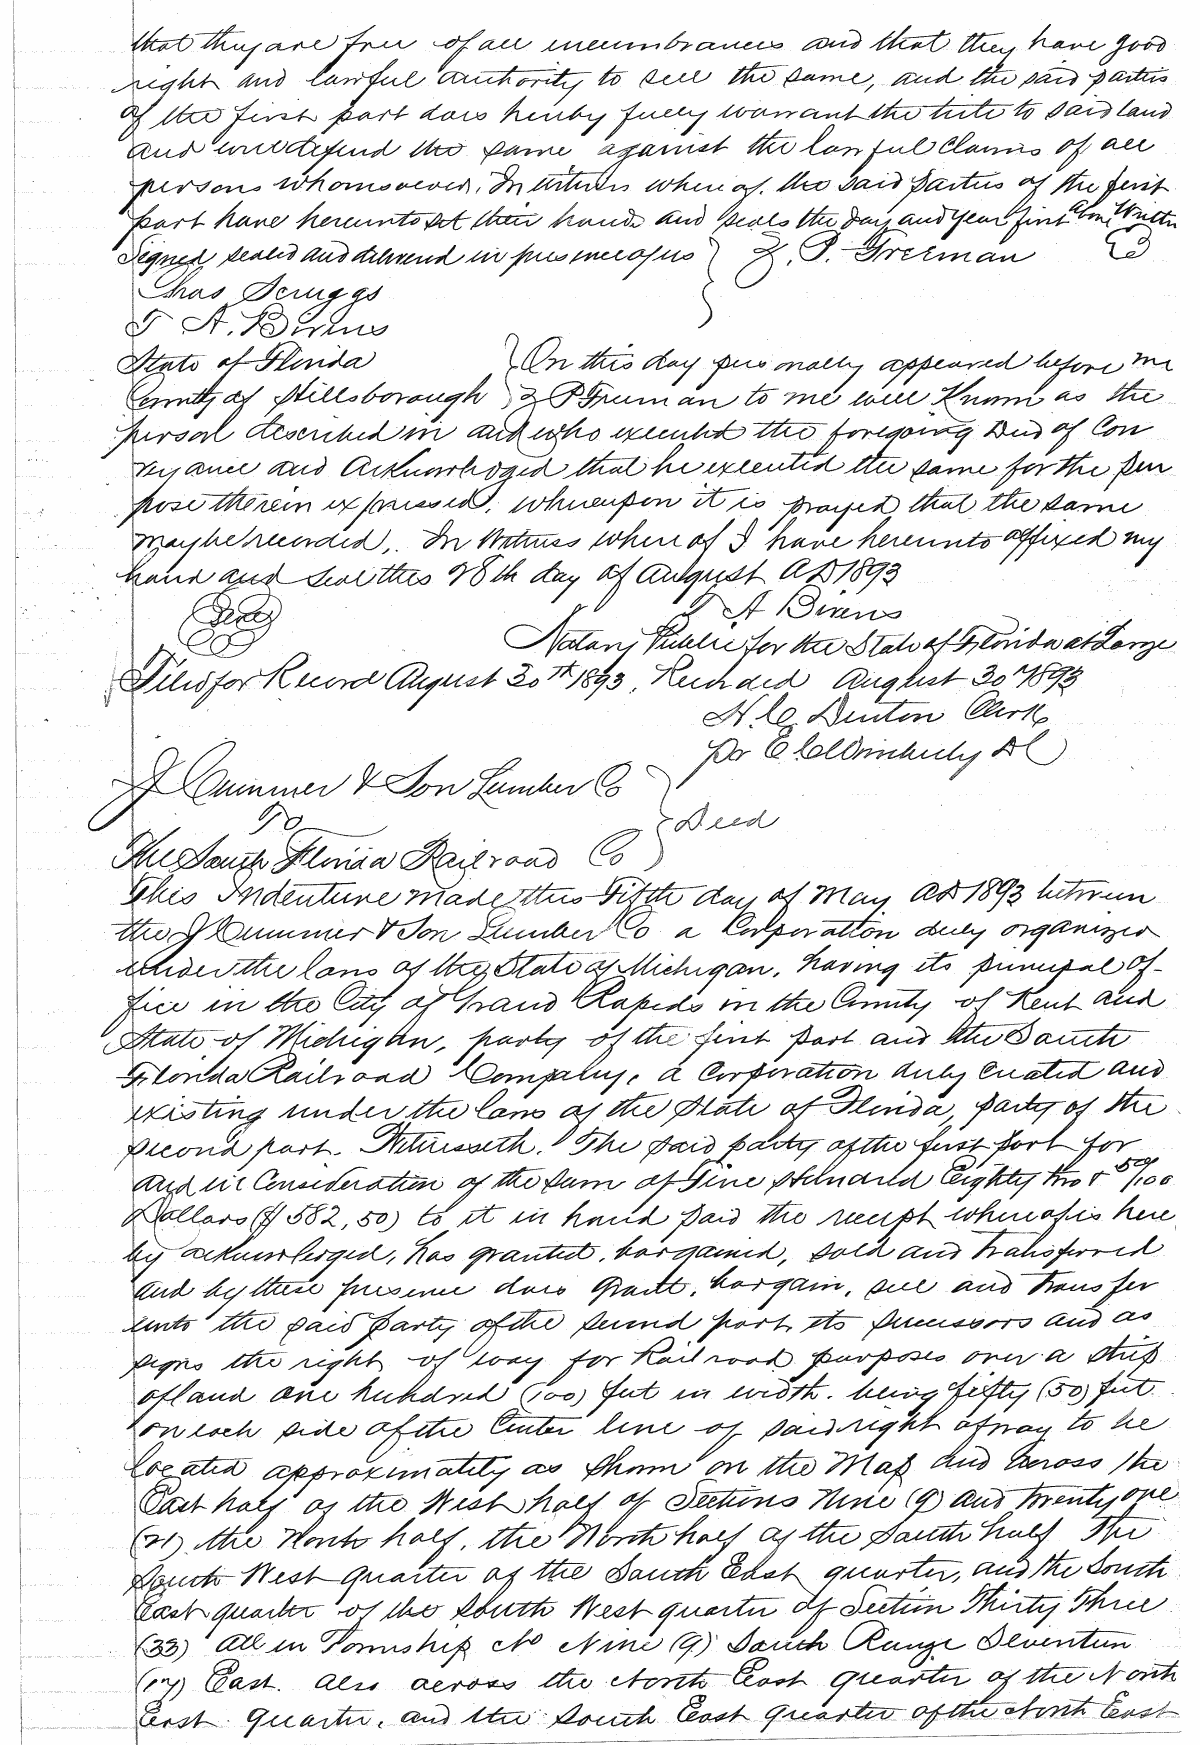 that they are free of all incumbrances and that they have good
right and lawful authority to sell the same, and the said parties
of the first part does hereby fully warrant the title to said land
and will defend the same against the lawful claims of all
persons whomsoever. In witness where of. the said parties of the first
part have hereunto set their hands and seals the day and year first above written
Signed sealed and delivered in presence of us } Z. P. Freeman
Chas Scruggs
T A. Bivens
State of Florida } On this day personally appeared before me
County of Hillsborough } Z P Freeman to me well Known as the
person described in and who executed the foregoing Deed of Con
veyance and Acknowledged that he executed the same for the pur
pose therein expressed, whereupon it is prayed that the same
may be recorded. In Witness where of I have hereunto affixed my
hand and seal this 28th day of August AD 1893
Seal T A Bivens
Notary Public for the State of Florida at Large
Filed for Record August 30th 1893, Recorded August 30th 1893
N. C. Denton Clerk
per E C Wimberly DC
J Cummer & Son Lumber Co
To } Deed
The South Florida Railroad Co
This Indenture made this Fifth day of May AD 1893 between
the J Cummer & Son Lumber Co a Corporation duly organized
under the laws of the State of Michigan, having its principal of-
fice in the City of Grand Rapids in the County of Kent and
State of Michigan, party of the first part and the South
Florida Railroad Company, a Corporation duly created and
existing under the laws of the State of Florida, party of the
second part. Witnesseth. The said party of the first part for
and in Consideration of the sum of Five Hundred Eighty two & 50/100
Dollars ($ 582,50) to it in hand paid the receipt where of is here
by acknowledged, has granted, bargained, sold and transferred
and by these presence does grant, bargain, sell and transfer
unto the said party of the second part its successors and as
signs the right of way for Railroad purposes over a strip
of land one hundred (100) feet in width. being fifty (50) feet
on each side of the Center line of said right of way to be
located approximately as shown on the Map and across the
East half of the West half of Sections Nine (9) and twenty one
(21) the North half, the North half of the South half the
South West quarter of the South East quarter, and the South
East quarter of the South West quarter of Section Thirty Three
(33) all in Township No Nine (9) South Range Seventeen
(17) East. also across the North East quarter of the North
East quarter, and the South East quarter of the North East